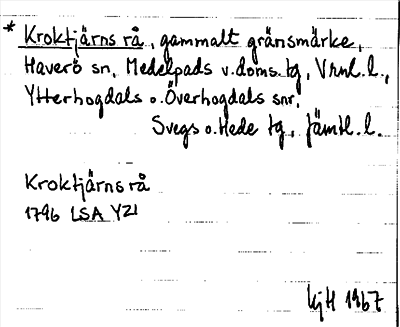 * Kroktjärns rå, gammalt gränsmärke,
Haverö sn, Medelpads v. doms. tg, Vrnl. l.,
Ytterhogdals o. Överhogdals snr,
Svegs o. Hede tg, Jämtl. l.
Kroktjärns rå
1796 LSA Y21
KjH 1967